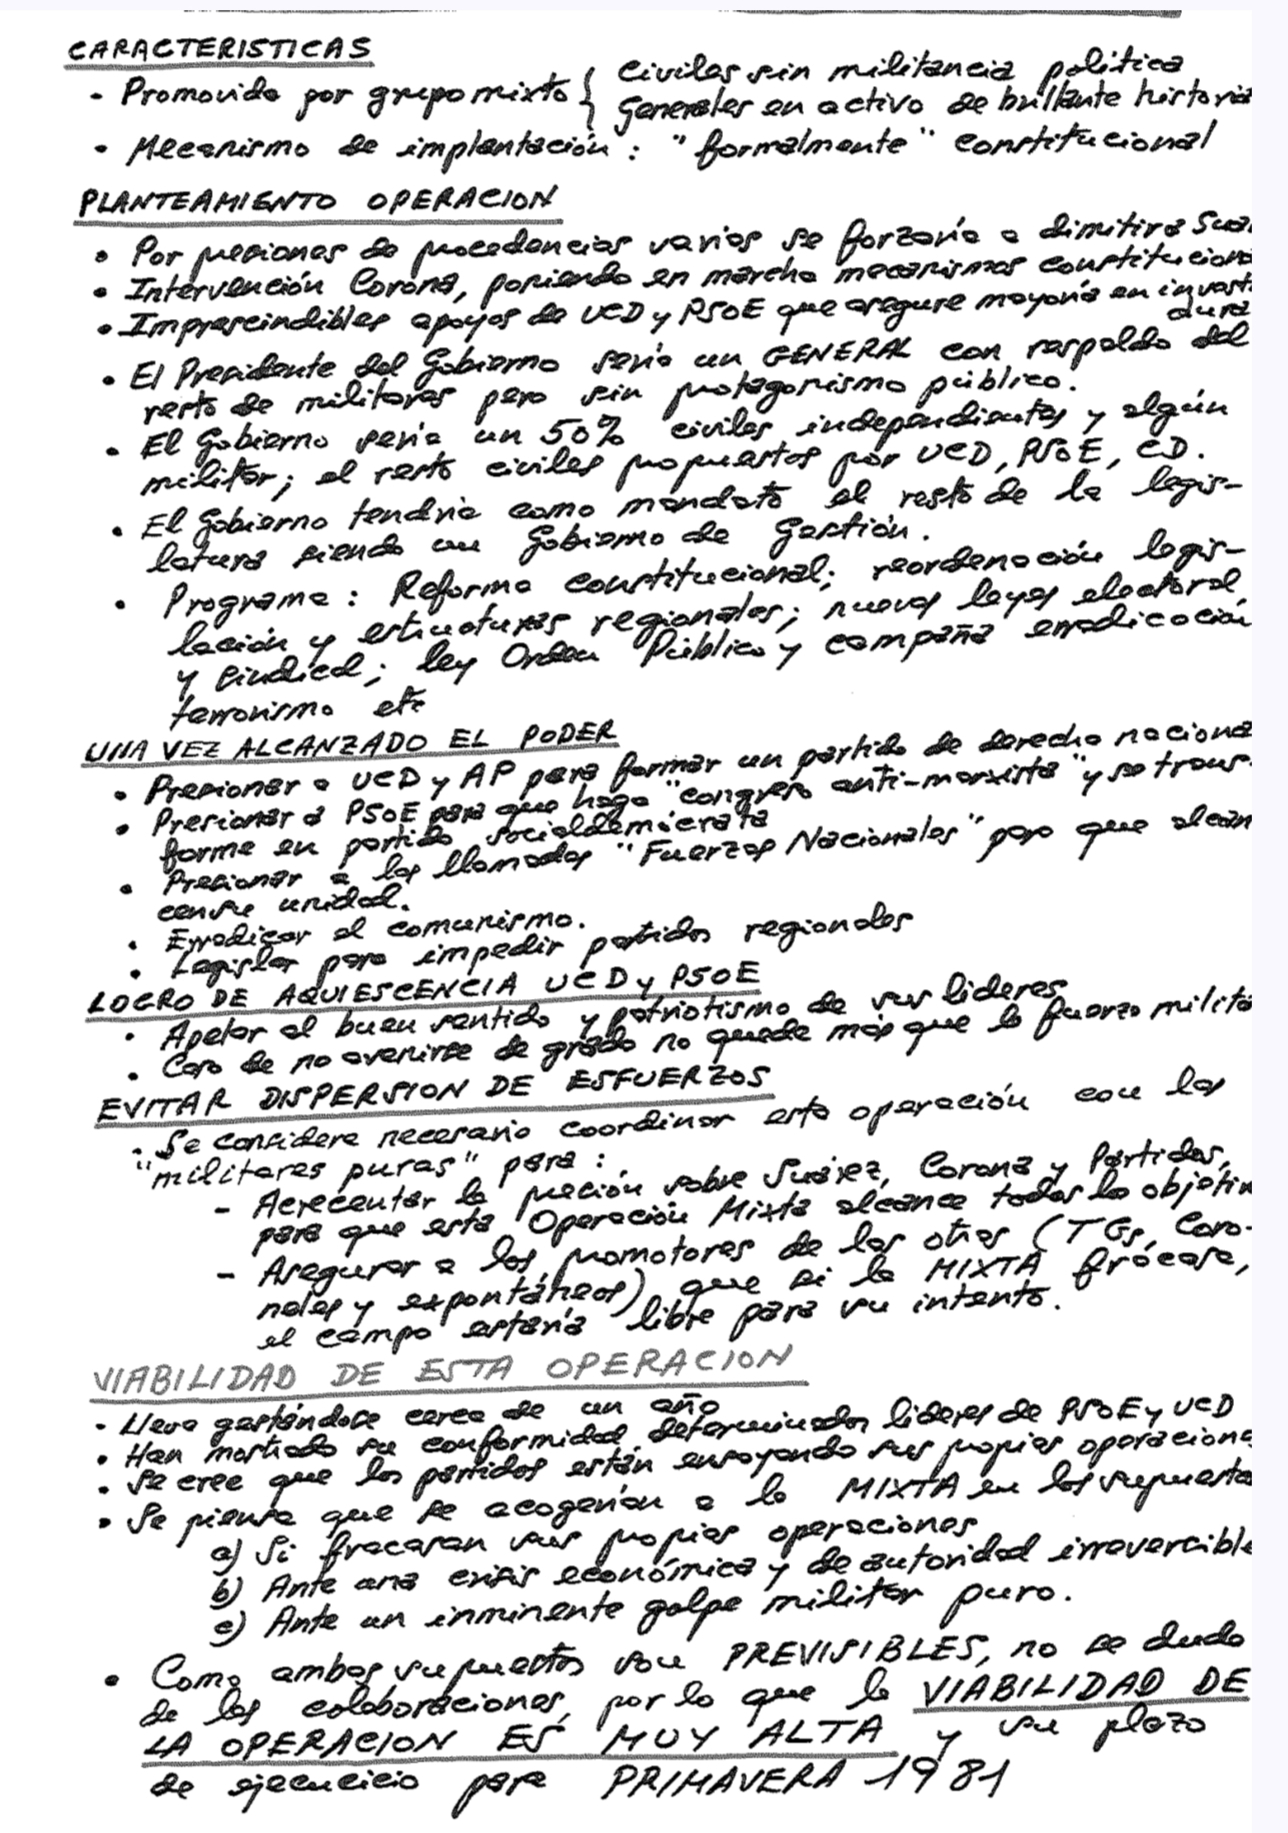 CARACTERISTICAS
- Promovida por grupo mixto { civiles sin militancia política
Generales en activo de brillante historia
- Mecanismo de implantación: "formalmente" constitucional
PLANTEAMIENTO OPERACION
• Por presiones de procedencias varias se forzaría a dimitir a Sua
• Intervención Corona, poniendo en marcha mecanismos constitucion
• Imprescindibles apoyos de UCD y PSOE que asegure mayoría en invest
dura
• El Presidente del Gobierno sería un GENERAL con respaldo del
resto de militares pero sin protagonismo público.
• El Gobierno sería un 50% civiles independientes y algún
militar; el resto civiles propuestos por UCD, PSOE, CD.
• El Gobierno tendría como mandato el resto de la legis-
latura siendo un Gobierno de Gestión.
• Programa: Reforma constitucional; reordenación legis-
lación y estructuras regionales; nuevas leyes electoral,
y sindical; ley Orden Público y campaña erradicación
terrorismo etc
UNA VEZ ALCANZADO EL PODER
• Presionar a UCD y AP para formar un partido de derecha naciona
• Presionar a PSOE para que haga "congreso anti-marxista" y se trans-
forme en partido socialdemócrata
• Presionar a las llamadas "Fuerzas Nacionales" para que alcan
cen su unidad.
• Erradicar el comunismo.
• Legislar para impedir partidos regionales
LOGRO DE AQUIESCENCIA UCD y PSOE
• Apelar al buen sentido y patriotismo de sus lideres
• Caso de no avenirse de grado no queda más que la fuerza milita
EVITAR DISPERSION DE ESFUERZOS
• Se considera necesario coordinar esta operación con las
"militares puras" para:
- Acrecentar la presión sobre Suárez, Corona y Partidos,
para que esta Operación Mixta alcance todos los objetiv
- Asegurar a los promotores de las otras (TGs, Coro-
neles y espontáneos) que si la MIXTA frácasa,
el campo estaría libre para su intento.
VIABILIDAD DE ESTA OPERACION
• Lleva gestándose cerca de un año
• Han mostrado su conformidad determinados lideres de PSOE y UCD
• Se cree que los partidos están ensayando sus propias operacione
• Se piensa que se acogerían a la MIXTA en los supuesto
a) Si fracasan sus propias operaciones
b) Ante una crisis económica y de autoridad irreversible
c) Ante un inminente golpe militar puro.
• Como ambos supuestos son PREVISIBLES, no se duda
de las colaboraciones, por lo que la VIABILIDAD DE
LA OPERACION ES MUY ALTA y su plazo
de ejecucicio para PRIMAVERA 1981